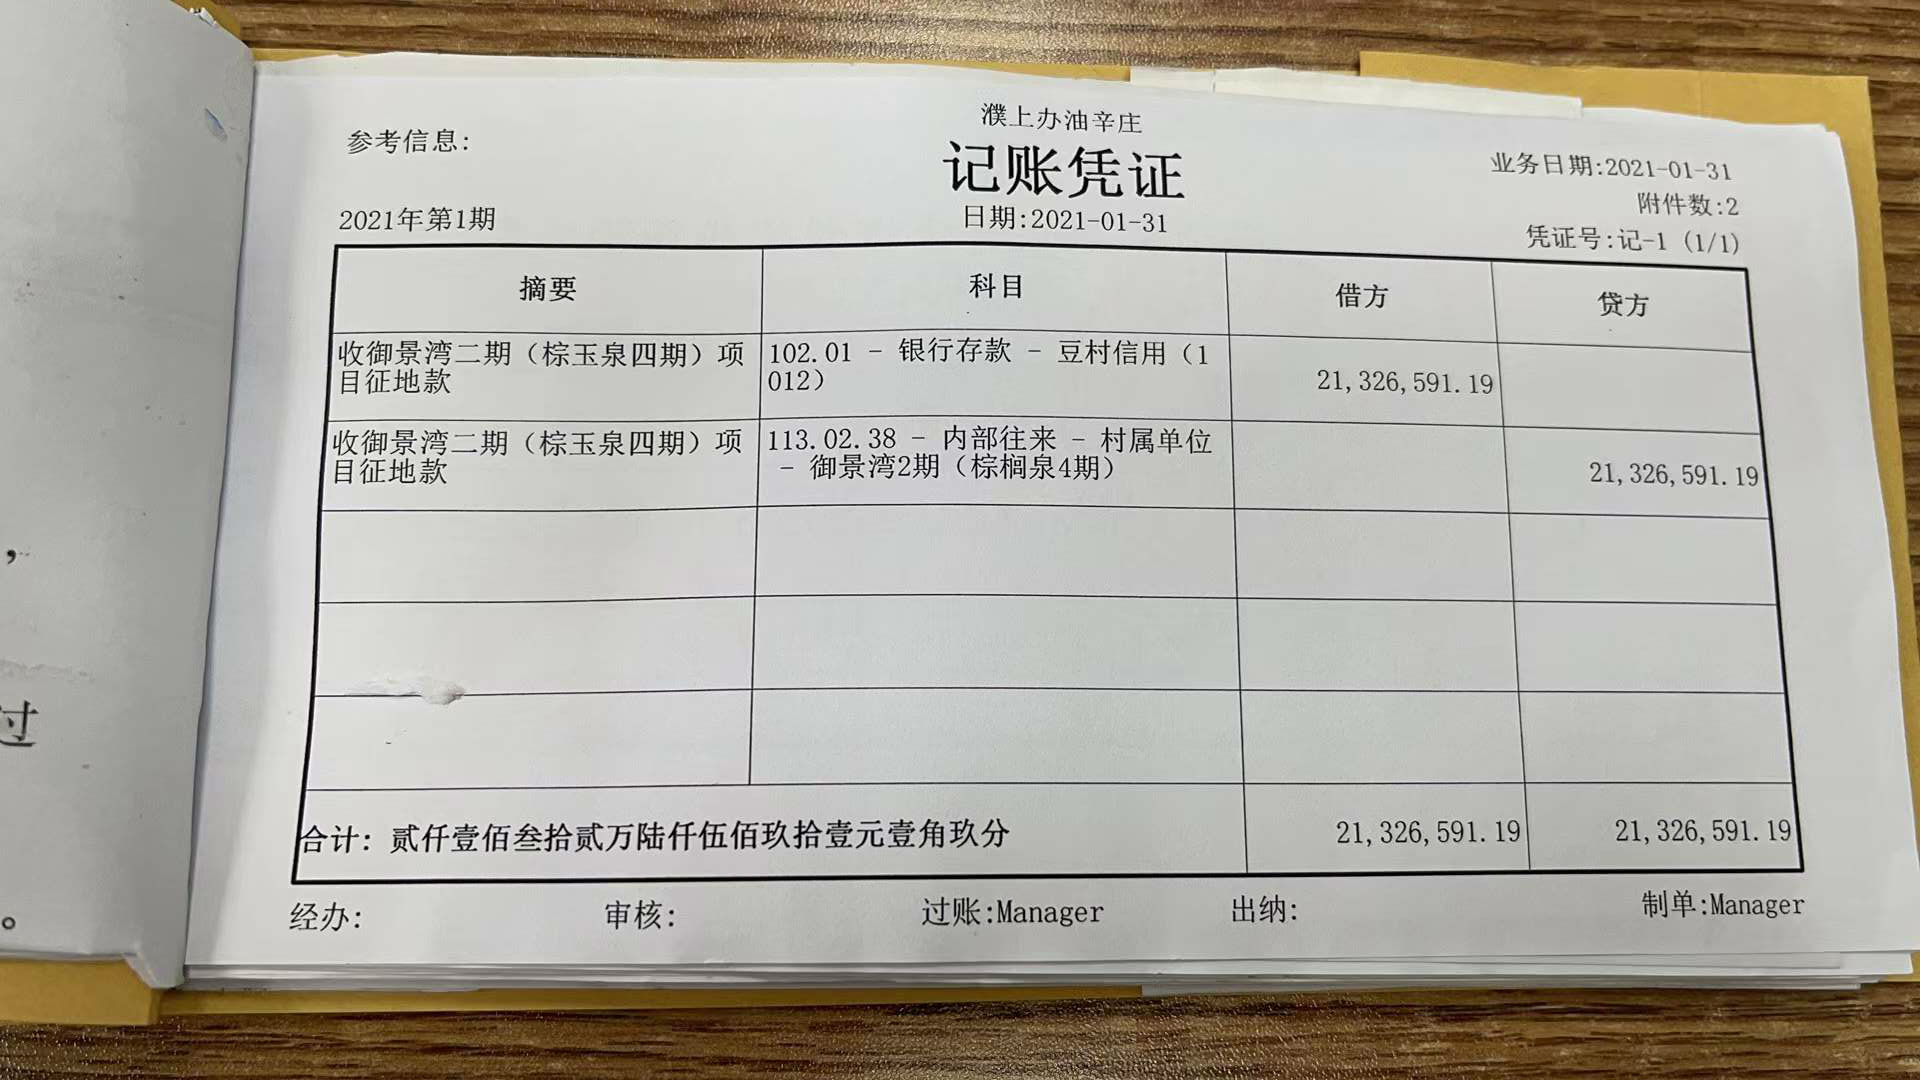 濮上办油辛庄
参考信息:
记账凭证
业务日期:2021-01-31
附件数:2
2021年第1期
日期:2021-01-31
凭证号:记-1 (1/1)
摘要 科目 借方 贷方
收御景湾二期（棕玉泉四期）项
目征地款
102.01 - 银行存款 - 豆村信用（1
012）
21,326,591.19
收御景湾二期（棕玉泉四期）项
目征地款
113.02.38 - 内部往来 - 村属单位
- 御景湾2期（棕榈泉4期）
21,326,591.19
合计: 贰仟壹佰叁拾贰万陆仟伍佰玖拾壹元壹角玖分 21,326,591.19 21,326,591.19
经办: 审核: 过账:Manager 出纳: 制单:Manager
，
过
。